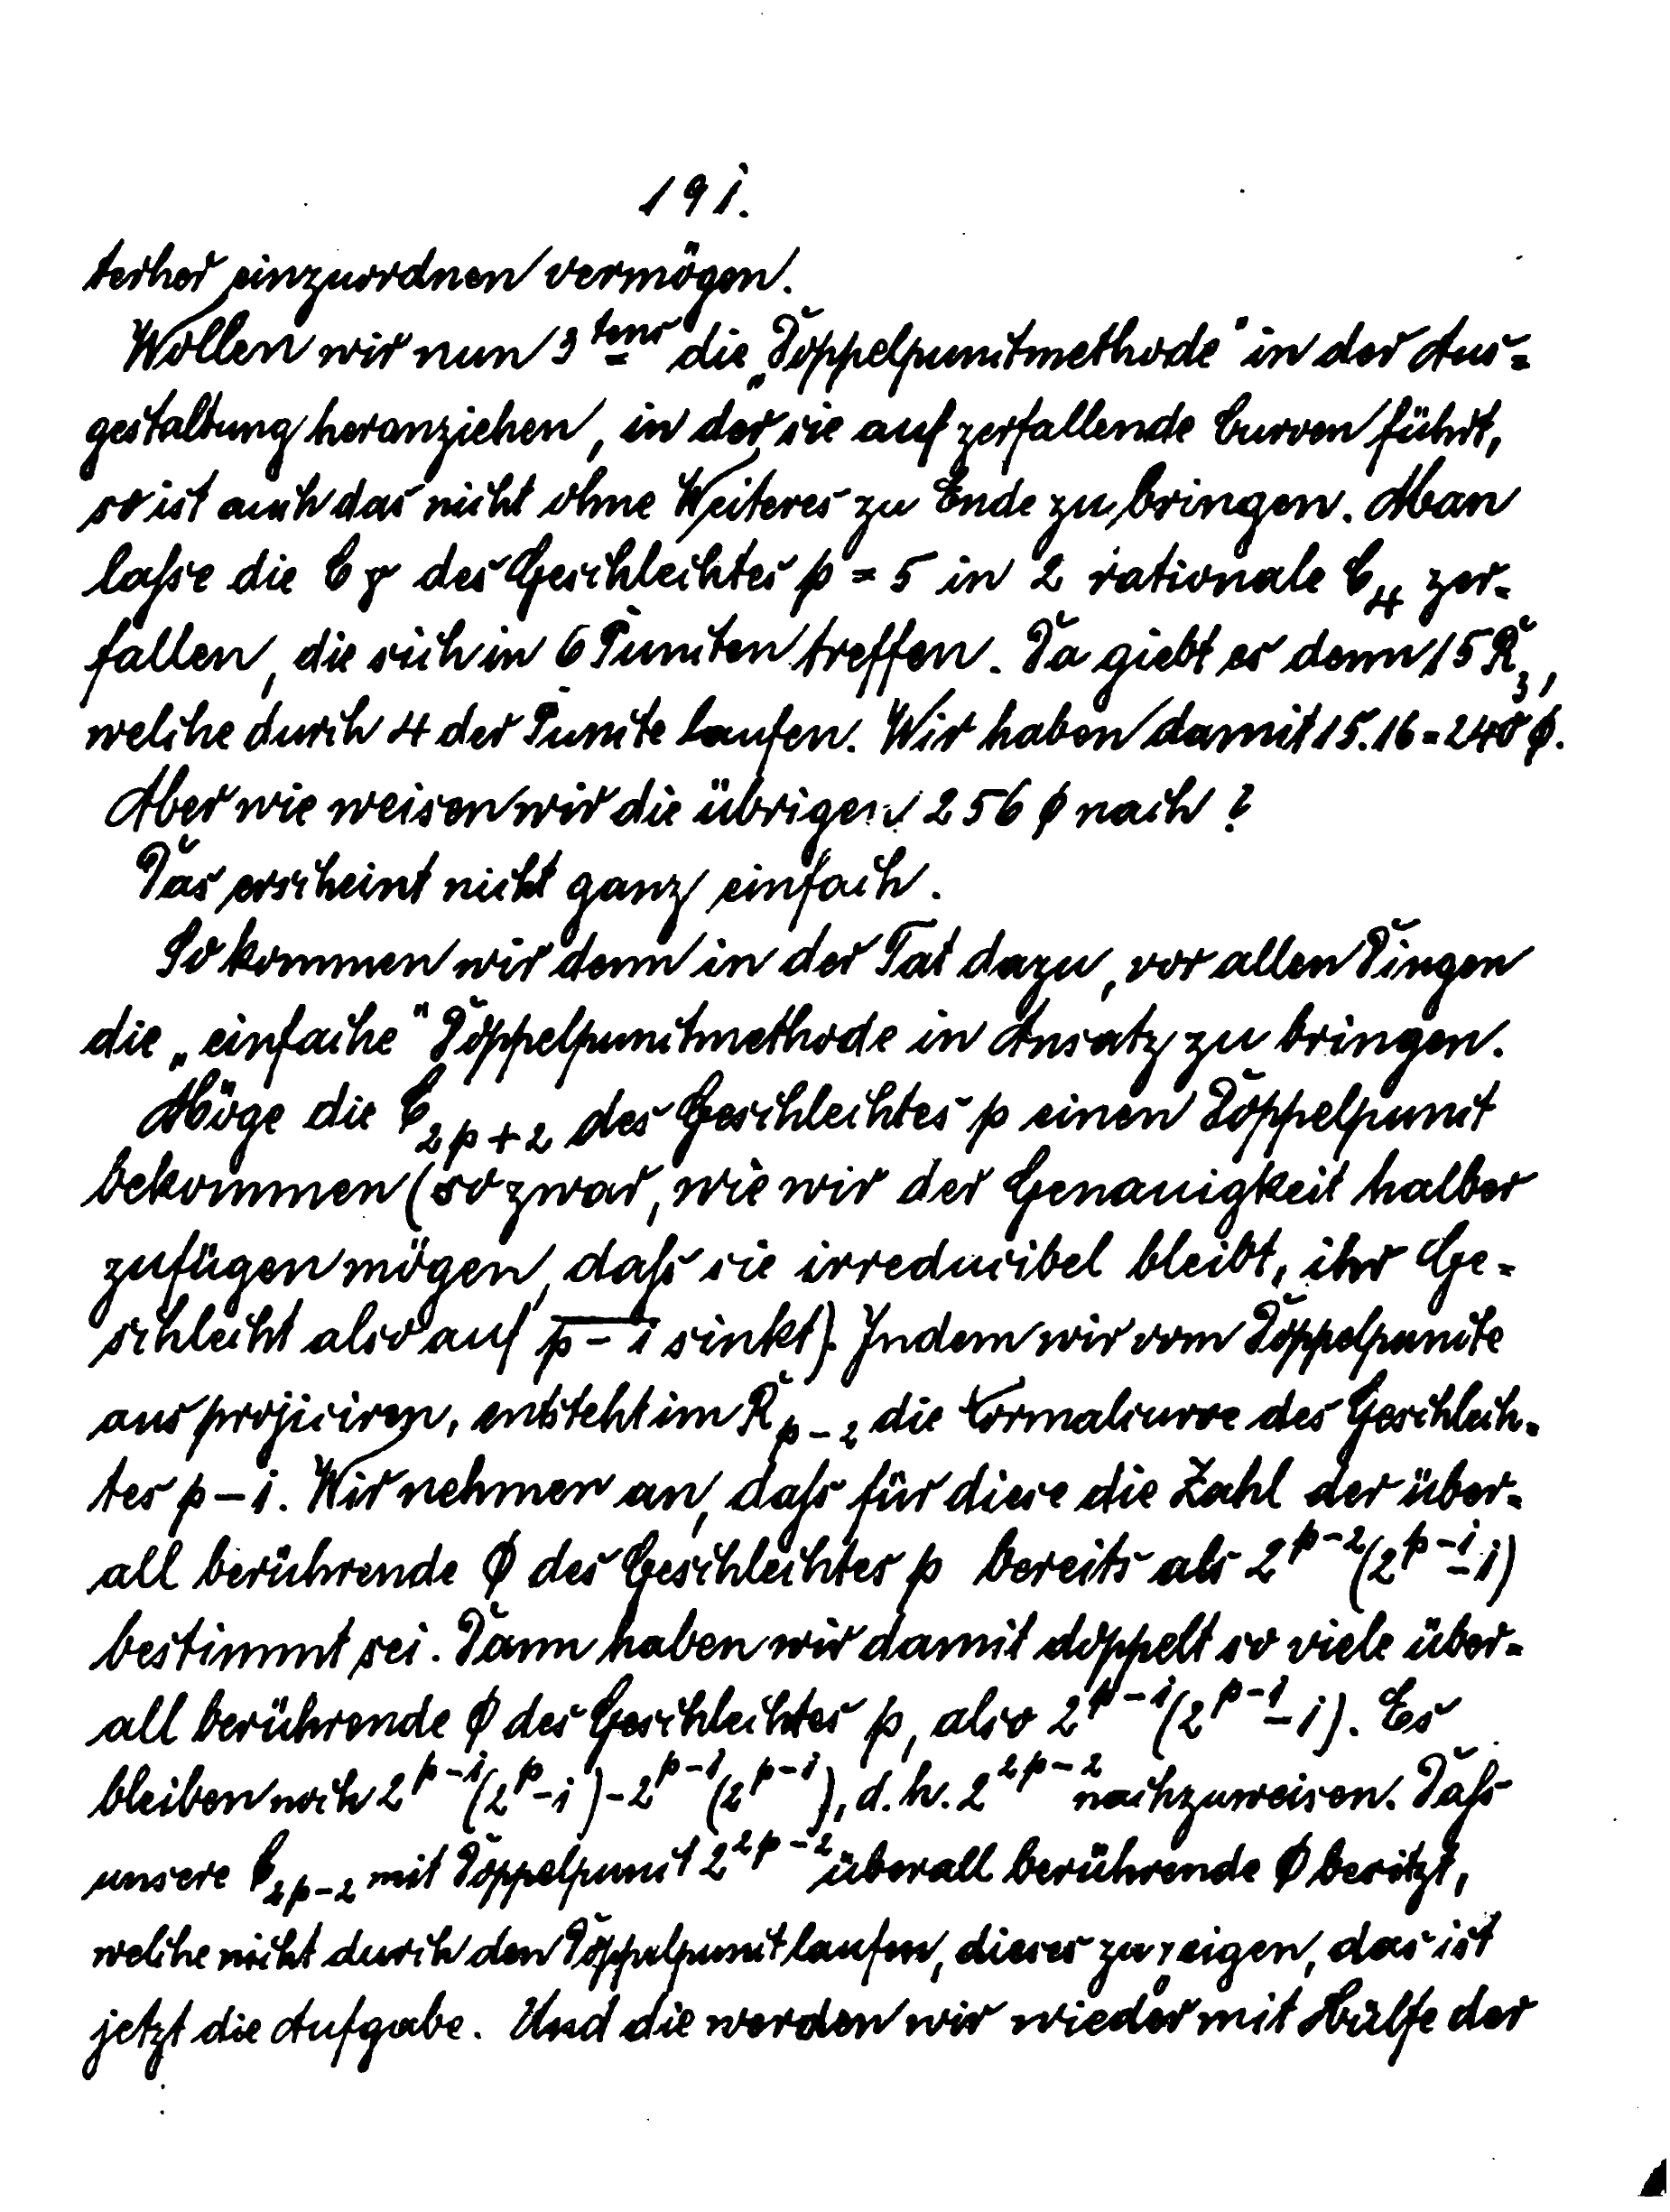 191.
terher einzuordnen vermögen.
Wollen wir nun 3tens die „Doppelpunctmethode" in der Aus-
gestaltung heranziehen, in der sie auf zerfallende Curven führt,
so ist auch das nicht ohne Weiteres zu Ende zu bringen. Man
lasse die C₈ des Geschlechtes p = 5 in 2 rationale C₄ zer-
fallen, die sich in 6 Puncten treffen. Da giebt es denn 15 R₃,
welche durch 4 der Puncte laufen. Wir haben damit 15.16 = 240 φ.
Aber wie weisen wir die übrigen 256 φ nach?
Das erscheint nicht ganz einfach.
So kommen wir denn in der Tat dazu, vor allen Dingen
die „einfache" Doppelpunctmethode in Ansatz zu bringen.
Möge die C_{2p+2} des Geschlechtes p einen Doppelpunct
bekommen (so zwar, wie wir der Genauigkeit halber
zufügen mögen, daß sie irreducibel bleibt, ihr Ge-
schlecht also auf p-1 sinkt). Indem wir vom Doppelpuncte
aus projiciren, entsteht im R_{p-2} die Normalcurve des Geschlech-
tes p-1. Wir nehmen an, daß für diese die Zahl der über-
all berührende φ des Geschlechtes p bereits als 2^{p-2}(2^{p-1}-1)
bestimmt sei. Dann haben wir damit doppelt so viele über-
all berührende φ des Geschlechtes p, also 2^{p-1}(2^{p-1}-1). Es
bleiben noch 2^{p-1}(2^p-1)-2^{p-1}(2^{p-1}), d.h. 2^{2p-2} nachzuweisen. Daß
unsere C_{2p-2} mit Doppelpunct 2^{2p-2} überall berührende φ besitzt,
welche nicht durch den Doppelpunct laufen, dieses zu zeigen, das ist
jetzt die Aufgabe. Und die werden wir wieder mit Hülfe der